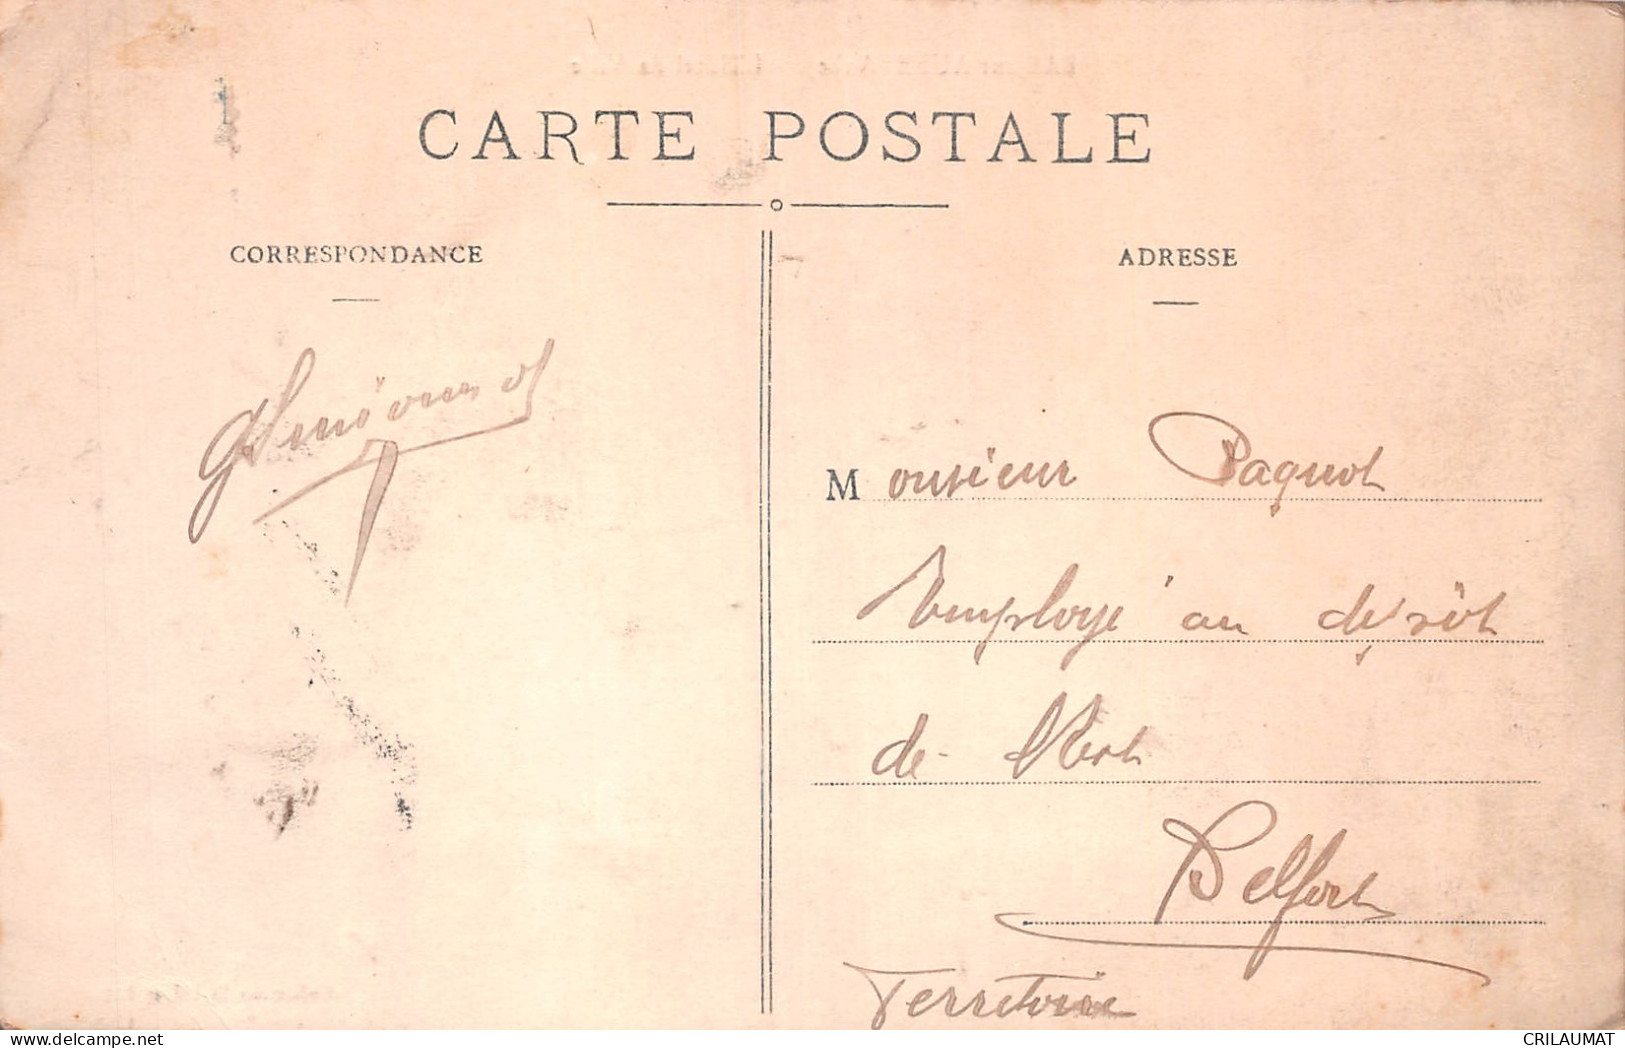 CARTE POSTALE
CORRESPONDANCE
ADRESSE
Monsieur Paquot
Employé au dépôt
de l'Est
Belfort
Territoire
CRILAUMAT